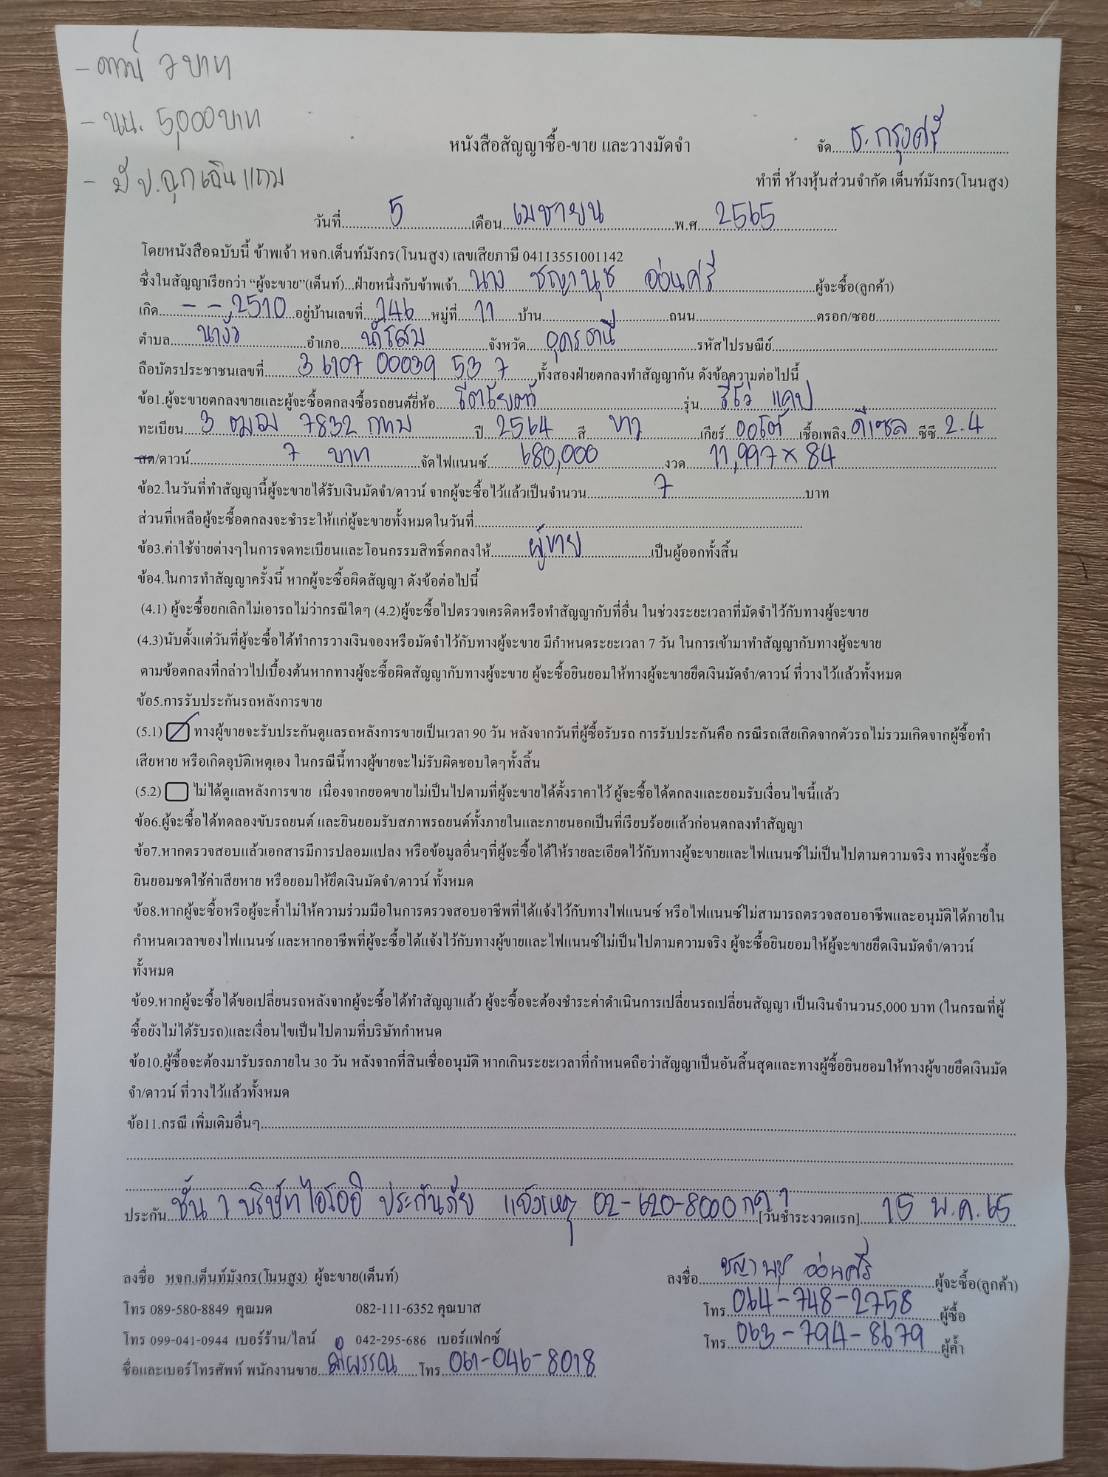 - ดาวน์ 7 บาท
- นน. 5,000 บาท
- มี ป.ฉุกเฉินแถม
หนังสือสัญญาซื้อ-ขาย และวางมัดจำ
จัด ธ.กรุงศรี
ทำที่ ห้างหุ้นส่วนจำกัด เต็นท์มังกร(โนนสูง)
วันที่ 5 เดือน เมษายน พ.ศ. 2565
โดยหนังสือฉบับนี้ ข้าพเจ้า หจก.เต็นท์มังกร(โนนสูง) เลขเสียภาษี 04113551001142
ซึ่งในสัญญาเรียกว่า "ผู้จะขาย"(เต็นท์)...ฝ่ายหนึ่งกับข้าพเจ้า นาง ชญานุช อ่อนศรี ผู้จะซื้อ(ลูกค้า)
เกิด - - 2510 อยู่บ้านเลขที่ 146 หมู่ที่ 11 บ้าน ถนน ตรอก/ซอย
ตำบล นางัว อำเภอ น้ำโสม จังหวัด อุดรธานี รหัสไปรษณีย์
ถือบัตรประชาชนเลขที่ 3 6107 00039 53 7 ทั้งสองฝ่ายตกลงทำสัญญากัน ดังข้อความต่อไปนี้
ข้อ1.ผู้จะขายตกลงขายและผู้จะซื้อตกลงซื้อรถยนต์ยี่ห้อ โตโยต้า รุ่น รีโว่ แคป
ทะเบียน 3 ฒฌ 7832 กทม ปี 2564 สี ขาว เกียร์ ออโต้ เชื้อเพลิง ดีเซล ซีซี 2.4
สด/ดาวน์ 7 บาท จัดไฟแนนซ์ 680,000 งวด 11,997 x 84
ข้อ2.ในวันที่ทำสัญญานี้ผู้จะขายได้รับเงินมัดจำ/ดาวน์ จากผู้จะซื้อไว้แล้วเป็นจำนวน 7 บาท
ส่วนที่เหลือผู้จะซื้อตกลงจะชำระให้แก่ผู้จะขายทั้งหมดในวันที่
ข้อ3.ค่าใช้จ่ายต่างๆในการจดทะเบียนและโอนกรรมสิทธิ์ตกลงให้ ผู้ขาย เป็นผู้ออกทั้งสิ้น
ข้อ4.ในการทำสัญญาครั้งนี้ หากผู้จะซื้อผิดสัญญา ดังข้อต่อไปนี้
(4.1) ผู้จะซื้อยกเลิกไม่เอารถไม่ว่ากรณีใดๆ (4.2)ผู้จะซื้อไปตรวจเครดิตหรือทำสัญญากับที่อื่น ในช่วงระยะเวลาที่มัดจำไว้กับทางผู้จะขาย
(4.3)นับตั้งแต่วันที่ผู้จะซื้อได้ทำการวางเงินจองหรือมัดจำไว้กับทางผู้จะขาย มีกำหนดระยะเวลา 7 วัน ในการเข้ามาทำสัญญากับทางผู้จะขาย
ตามข้อตกลงที่กล่าวไปเบื้องต้นหากทางผู้จะซื้อผิดสัญญากับทางผู้จะขาย ผู้จะซื้อยินยอมให้ทางผู้จะขายยึดเงินมัดจำ/ดาวน์ ที่วางไว้แล้วทั้งหมด
ข้อ5.การรับประกันรถหลังการขาย
(5.1) ทางผู้ขายจะรับประกันดูแลรถหลังการขายเป็นเวลา 90 วัน หลังจากวันที่ผู้ซื้อรับรถ การรับประกันคือ กรณีรถเสียเกิดจากตัวรถไม่รวมเกิดจากผู้ซื้อทำ
เสียหาย หรือเกิดอุบัติเหตุเอง ในกรณีนี้ทางผู้ขายจะไม่รับผิดชอบใดๆทั้งสิ้น
(5.2) ไม่ได้ดูแลหลังการขาย เนื่องจากยอดขายไม่เป็นไปตามที่ผู้จะขายได้ตั้งราคาไว้ ผู้จะซื้อได้ตกลงและยอมรับเงื่อนไขนี้แล้ว
ข้อ6.ผู้จะซื้อได้ทดลองขับรถยนต์ และยินยอมรับสภาพรถยนต์ทั้งภายในและภายนอกเป็นที่เรียบร้อยแล้วก่อนตกลงทำสัญญา
ข้อ7.หากตรวจสอบแล้วเอกสารมีการปลอมแปลง หรือข้อมูลอื่นๆที่ผู้จะซื้อได้ให้รายละเอียดไว้กับทางผู้จะขายและไฟแนนซ์ไม่เป็นไปตามความจริง ทางผู้จะซื้อ
ยินยอมชดใช้ค่าเสียหาย หรือยอมให้ยึดเงินมัดจำ/ดาวน์ ทั้งหมด
ข้อ8.หากผู้จะซื้อหรือผู้จะค้ำไม่ให้ความร่วมมือในการตรวจสอบอาชีพที่ได้แจ้งไว้กับทางไฟแนนซ์ หรือไฟแนนซ์ไม่สามารถตรวจสอบอาชีพและอนุมัติได้ภายใน
กำหนดเวลาของไฟแนนซ์ และหากอาชีพที่ผู้จะซื้อได้แจ้งไว้กับทางผู้ขายและไฟแนนซ์ไม่เป็นไปตามความจริง ผู้จะซื้อยินยอมให้ผู้จะขายยึดเงินมัดจำ/ดาวน์
ทั้งหมด
ข้อ9.หากผู้จะซื้อได้ขอเปลี่ยนรถหลังจากผู้จะซื้อได้ทำสัญญาแล้ว ผู้จะซื้อจะต้องชำระค่าดำเนินการเปลี่ยนรถเปลี่ยนสัญญา เป็นเงินจำนวน5,000 บาท (ในกรณที่ผู้
ซื้อยังไม่ได้รับรถ)และเงื่อนไขเป็นไปตามที่บริษัทกำหนด
ข้อ10.ผู้ซื้อจะต้องมารับรถภายใน 30 วัน หลังจากที่สินเชื่ออนุมัติ หากเกินระยะเวลาที่กำหนดถือว่าสัญญาเป็นอันสิ้นสุดและทางผู้ซื้อยินยอมให้ทางผู้ขายยึดเงินมัด
จำ/ดาวน์ ที่วางไว้แล้วทั้งหมด
ข้อ11.กรณี เพิ่มเติมอื่นๆ
ประกัน ชั้น 1 บริษัท ไอโออิ ประกันภัย แจ้งเหตุ 02-620-8000 กด 1 [วันชำระงวดแรก] 15 พ.ค. 65
ลงชื่อ หจก.เต็นท์มังกร(โนนสูง) ผู้จะขาย(เต็นท์)
ลงชื่อ ชญานุช อ่อนศรี ผู้จะซื้อ(ลูกค้า)
โทร 089-580-8849 คุณมด 082-111-6352 คุณบาส
โทร 064-748-2758 ผู้ซื้อ
โทร 099-041-0944 เบอร์ร้าน/ไลน์ 042-295-686 เบอร์แฟกซ์
โทร 063-794-8679 ผู้ค้ำ
ชื่อและเบอร์โทรศัพท์ พนักงานขาย โทร 061-046-8018